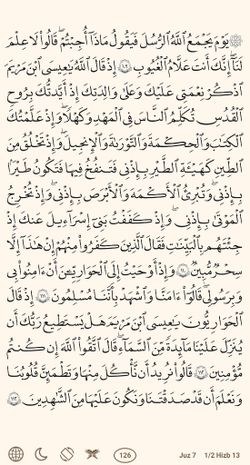 ۞ يَوْمَ يَجْمَعُ ٱللَّهُ ٱلرُّسُلَ فَيَقُولُ مَاذَآ أُجِبْتُمْ ۖ قَالُوا۟ لَا عِلْمَ
لَنَآ ۖ إِنَّكَ أَنتَ عَلَّٰمُ ٱلْغُيُوبِ ١٠٩ إِذْ قَالَ ٱللَّهُ يَٰعِيسَى ٱبْنَ مَرْيَمَ
ٱذْكُرْ نِعْمَتِى عَلَيْكَ وَعَلَىٰ وَٰلِدَتِكَ إِذْ أَيَّدتُّكَ بِرُوحِ
ٱلْقُدُسِ تُكَلِّمُ ٱلنَّاسَ فِى ٱلْمَهْدِ وَكَهْلًا ۖ وَإِذْ عَلَّمْتُكَ
ٱلْكِتَٰبَ وَٱلْحِكْمَةَ وَٱلتَّوْرَىٰةَ وَٱلْإِنجِيلَ ۖ وَإِذْ تَخْلُقُ مِنَ
ٱلطِّينِ كَهَيْـَٔةِ ٱلطَّيْرِ بِإِذْنِى فَتَنفُخُ فِيهَا فَتَكُونُ طَيْرًۢا
بِإِذْنِى ۖ وَتُبْرِئُ ٱلْأَكْمَهَ وَٱلْأَبْرَصَ بِإِذْنِى ۖ وَإِذْ تُخْرِجُ
ٱلْمَوْتَىٰ بِإِذْنِى ۖ وَإِذْ كَفَفْتُ بَنِىٓ إِسْرَٰٓءِيلَ عَنكَ إِذْ
جِئْتَهُم بِٱلْبَيِّنَٰتِ فَقَالَ ٱلَّذِينَ كَفَرُوا۟ مِنْهُمْ إِنْ هَٰذَآ إِلَّا
سِحْرٌ مُّبِينٌ ١١٠ وَإِذْ أَوْحَيْتُ إِلَى ٱلْحَوَارِيِّـۧنَ أَنْ ءَامِنُوا۟ بِى
وَبِرَسُولِى قَالُوٓا۟ ءَامَنَّا وَٱشْهَدْ بِأَنَّنَا مُسْلِمُونَ ١١١ إِذْ قَالَ
ٱلْحَوَارِيُّونَ يَٰعِيسَى ٱبْنَ مَرْيَمَ هَلْ يَسْتَطِيعُ رَبُّكَ أَن
يُنَزِّلَ عَلَيْنَا مَآئِدَةً مِّنَ ٱلسَّمَآءِ ۖ قَالَ ٱتَّقُوا۟ ٱللَّهَ إِن كُنتُم
مُّؤْمِنِينَ ١١٢ قَالُوا۟ نُرِيدُ أَن نَّأْكُلَ مِنْهَا وَتَطْمَئِنَّ قُلُوبُنَا
وَنَعْلَمَ أَن قَدْ صَدَقْتَنَا وَنَكُونَ عَلَيْهَا مِنَ ٱلشَّٰهِدِينَ ١١٣
126 Juz 7 1/2 Hizb 13